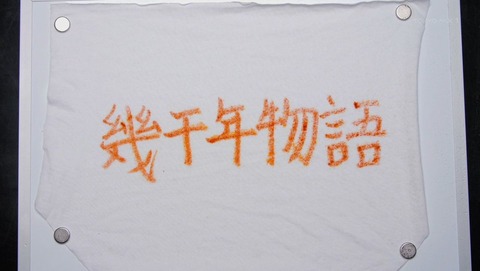 幾千年物語